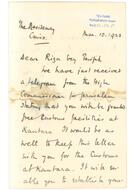 The Residency
Cairo.
June. 10. 1920
Dear Rizu bey Tewfik
We have just received
a telegram from the High
Commissioner in Jerusalem
stating that you will be granted
free Customs facilities at
Kantara. It would be as
well to keep this letter
with you for the Customs
at Kantara. It will be
able to you to establish your